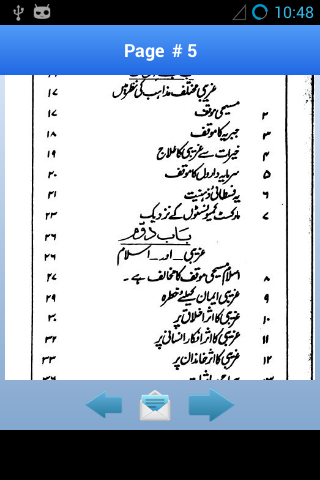 10:48
Page # 5
غریبی مختلف مذاہب کی نظر میں ۱۷
۲ مسیحی موقف ۱۷
۳ جبریہ کا موقف ۱۸
۴ خیرات سے غریبی کا علاج ۱۹
۵ سرمایہ داروں کا موقف ۲۰
۶ یہ فسطائی ذہنیت ۲۱
۷ مارکسٹ کمیونسٹوں کے نزدیک ۲۳
باب دوم ۲۶
غریبی اور اسلام ۲۶
۸ اسلام مسیحی موقف کا مخالف ہے۔ ۲۷
۹ غریبی ایمان کیلئے خطرہ ۲۹
۱۰ غریبی کا اثر اخلاق پر ۳۰
۱۱ غریبی کا اثر افکار انسانی پر ۳۲
۱۲ غریبی کا اثر خاندان پر ۳۳